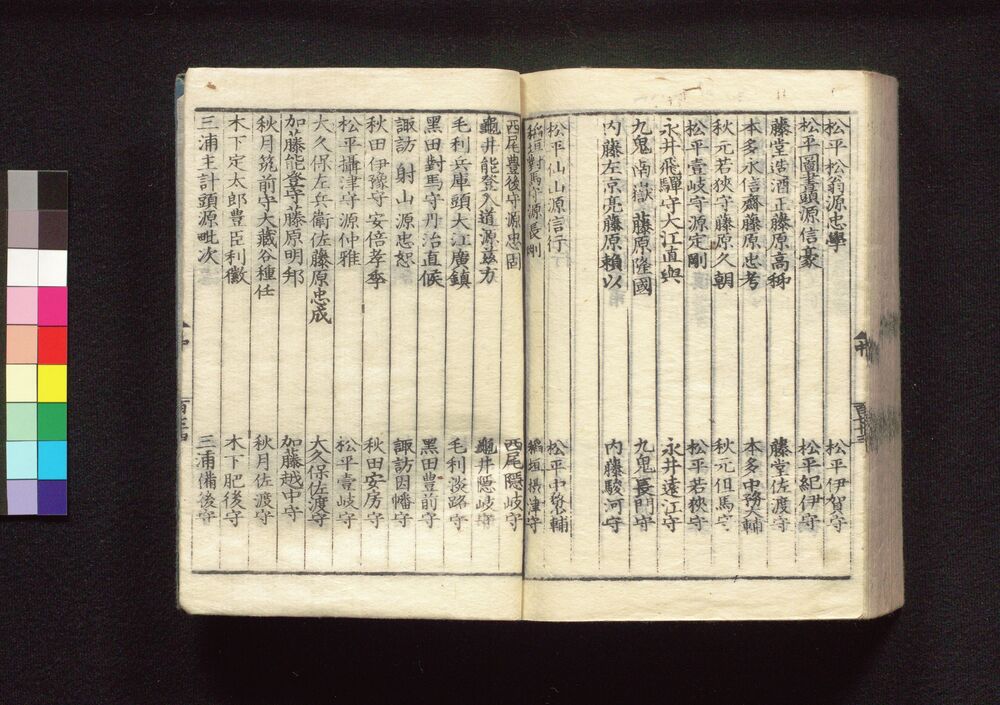 松平松翁源忠學 松平伊賀守
松平圖書頭源信豪 松平紀伊守
藤堂造酒正藤原高秭 藤堂佐渡守
本多永信齋藤原忠考 本多中務大輔
秋元若狹守藤原久朝 秋元但馬守
松平壹岐守源定剛 松平若狹守
永井飛驒守大江直與 永井遠江守
九鬼嶽藤原隆國 九鬼長門守
内藤左京亮藤原賴以 内藤駿河守
松平仙山源信行 松平中務輔
稲垣對馬守源長剛 稲垣摂津守
西尾豊後守源忠固 西尾隠岐守
龜井能登入道源玆方 龜井隠岐守
毛利兵庫頭大江廣鎮 毛利淡路守
黒田對馬守丹治直候 黒田豊前守
諏訪射山源忠恕 諏訪因幡守
秋田伊豫守安倍孝季 秋田安房守
松平攝津守源仲雅 松平壹岐守
大久保左兵衛佐藤原忠成 大久保佐渡守
加藤能登守藤原明邦 加藤越中守
秋月筑前守大蔵谷種任 秋月佐渡守
木下定太郎豊臣利徽 木下肥後守
三浦主計頭源毗次 三浦備後守